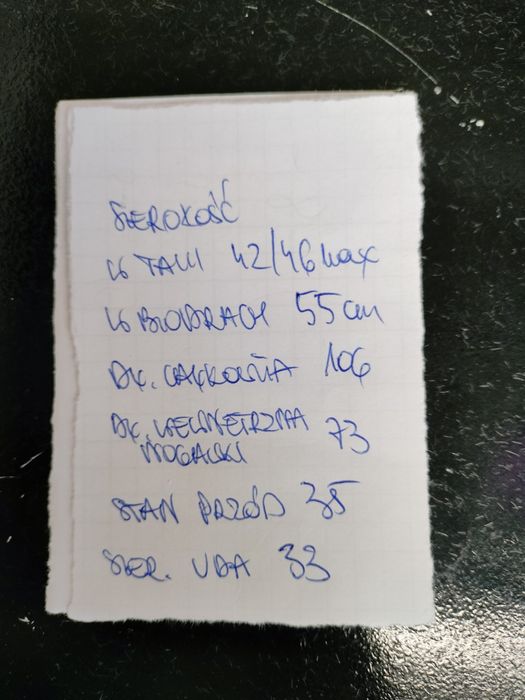 SZEROKOŚĆ
W TALII 42/46 max
W BIODRACH 55cm
DŁ. CAŁKOWITA 106
DŁ. WEWNĘTRZNA 73
NOGAWKI
STAN PRZÓD 35
SZER. UDA 33